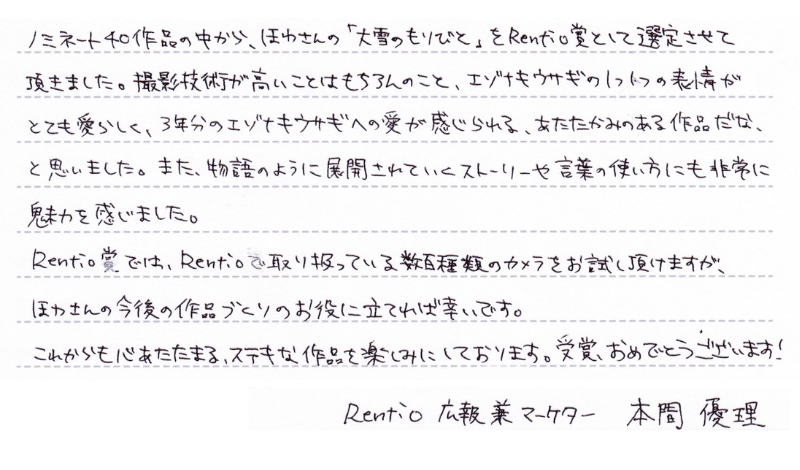 ノミネート40作品の中から、ほわさんの「大雪のもりびと」をRentio賞として選定させて
頂きました。撮影技術が高いことはもちろんのこと、エゾナキウサギの1つ1つの表情が
とても愛らしく、3年分のエゾナキウサギへの愛が感じられる、あたたかみのある作品だな、
と思いました。また、物語のように展開されていくストーリーや言葉の使い方にも非常に
魅力を感じました。
Rentio賞では、Rentioで取り扱っている数百種類のカメラをお試し頂けますが、
ほわさんの今後の作品づくりのお役に立てれば幸いです。
これからも心あたたまる、ステキな作品を楽しみにしております。受賞、おめでとうございます!
Rentio 広報兼マーケター 本間 優理